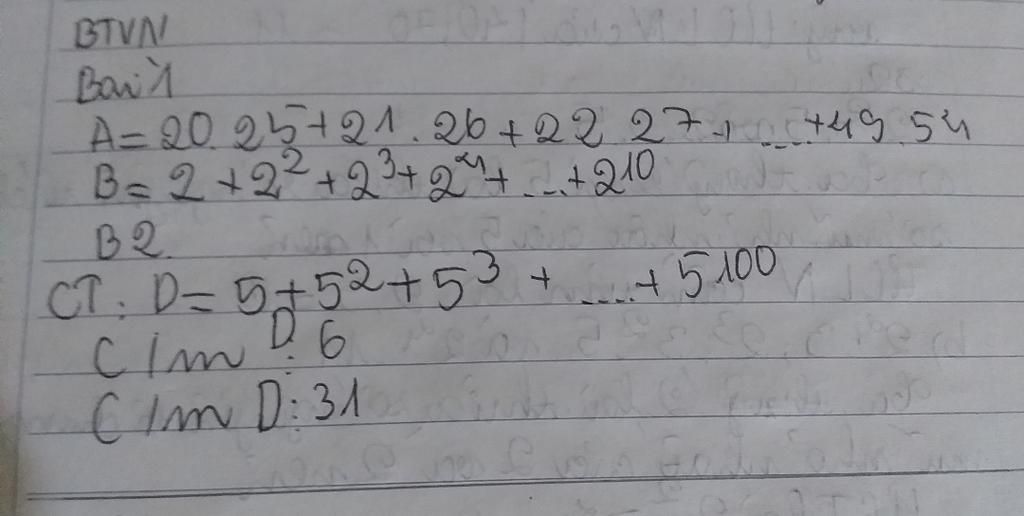 BTVN
Bài 1
A = 20.25 + 21.26 + 22.27 + .... + 49.54
B = 2 + 2² + 2³ + 2⁴ + ... + 2¹⁰
B2.
CT: D = 5 + 5² + 5³ + .... + 5¹⁰⁰
C/m D⋮6
C/m D⋮31